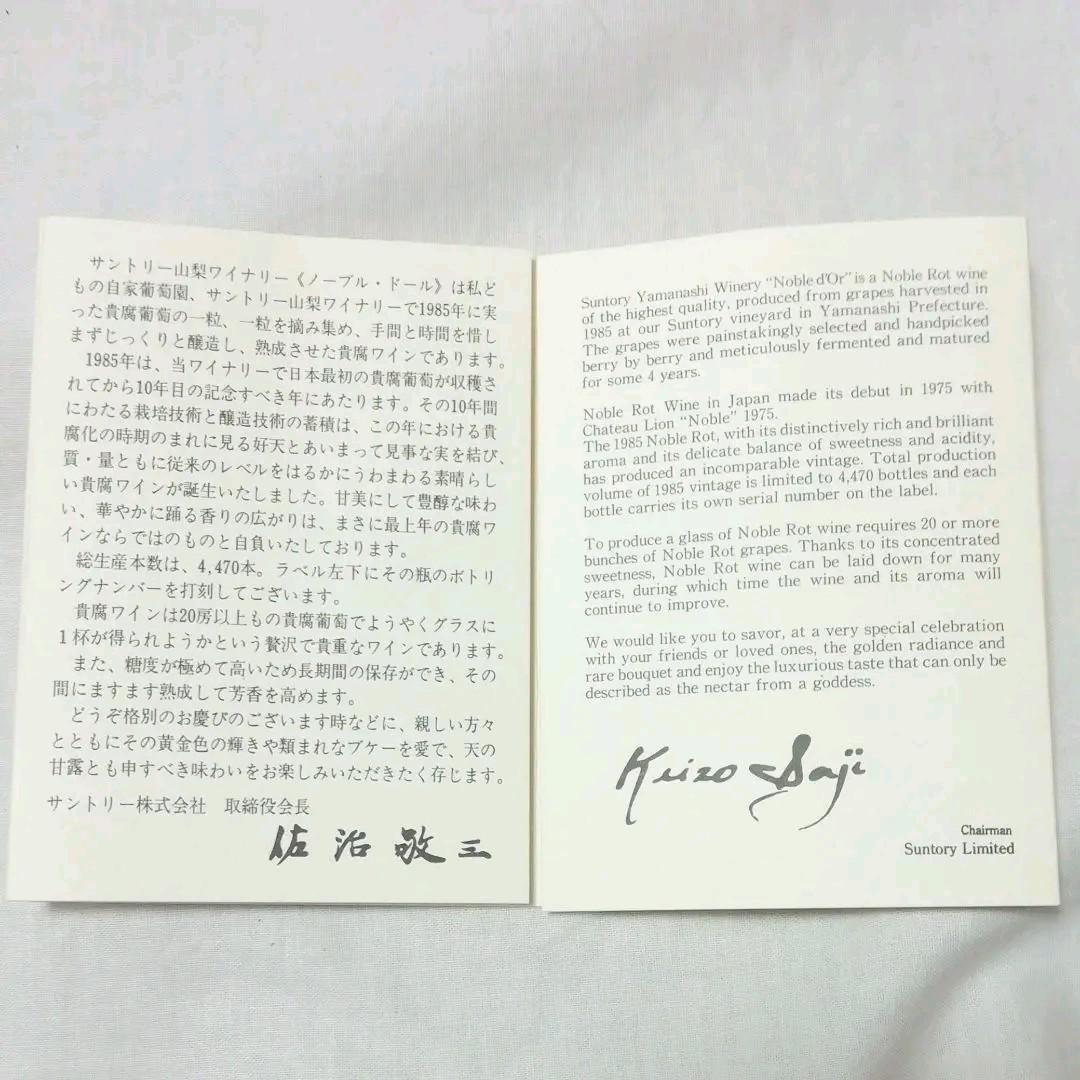 サントリー山梨ワイナリー《ノーブル・ドール》は私ど
もの自家葡萄園、サントリー山梨ワイナリーで1985年に実
った貴腐葡萄の一粒、一粒を摘み集め、手間と時間を惜し
まずじっくりと醸造し、熟成させた貴腐ワインであります。
1985年は、当ワイナリーで日本最初の貴腐葡萄が収穫さ
れてから10年目の記念すべき年にあたります。その10年間
にわたる栽培技術と醸造技術の蓄積は、この年における貴
腐化の時期のまれに見る好天とあいまって見事な実を結び、
質・量ともに従来のレベルをはるかにうわまわる素晴らし
い貴腐ワインが誕生いたしました。甘美にして豊醇な味わ
い、華やかに踊る香りの広がりは、まさに最上年の貴腐ワ
インならではのものと自負いたしております。
総生産本数は、4,470本。ラベル左下にその瓶のボトリ
ングナンバーを打刻してございます。
貴腐ワインは20房以上もの貴腐葡萄でようやくグラスに
1杯が得られようかという贅沢で貴重なワインであります。
また、糖度が極めて高いため長期間の保存ができ、その
間にますます熟成して芳香を高めます。
どうぞ格別のお慶びのございます時などに、親しい方々
とともにその黄金色の輝きや類まれなブケーを愛で、天の
甘露とも申すべき味わいをお楽しみいただきたく存じます。
サントリー株式会社 取締役会長
佐治敬三
Suntory Yamanashi Winery “Noble d'Or” is a Noble Rot wine
of the highest quality, produced from grapes harvested in
1985 at our Suntory vineyard in Yamanashi Prefecture.
The grapes were painstakingly selected and handpicked
berry by berry and meticulously fermented and matured
for some 4 years.
Noble Rot Wine in Japan made its debut in 1975 with
Chateau Lion “Noble” 1975.
The 1985 Noble Rot, with its distinctively rich and brilliant
aroma and its delicate balance of sweetness and acidity,
has produced an incomparable vintage. Total production
volume of 1985 vintage is limited to 4,470 bottles and each
bottle carries its own serial number on the label.
To produce a glass of Noble Rot wine requires 20 or more
bunches of Noble Rot grapes. Thanks to its concentrated
sweetness, Noble Rot wine can be laid down for many
years, during which time the wine and its aroma will
continue to improve.
We would like you to savor, at a very special celebration
with your friends or loved ones, the golden radiance and
rare bouquet and enjoy the luxurious taste that can only be
described as the nectar from a goddess.
Keizo Saji
Chairman
Suntory Limited